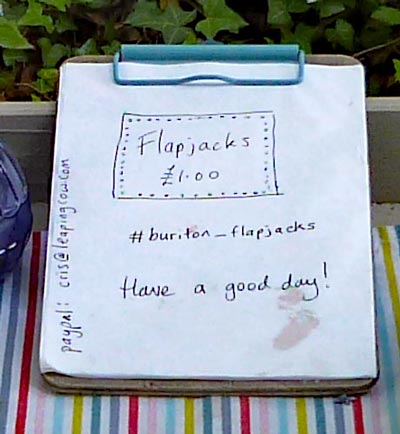 Flapjacks
£1.00
#buriton_flapjacks
Have a good day!
paypal: cris@leapingcow.com